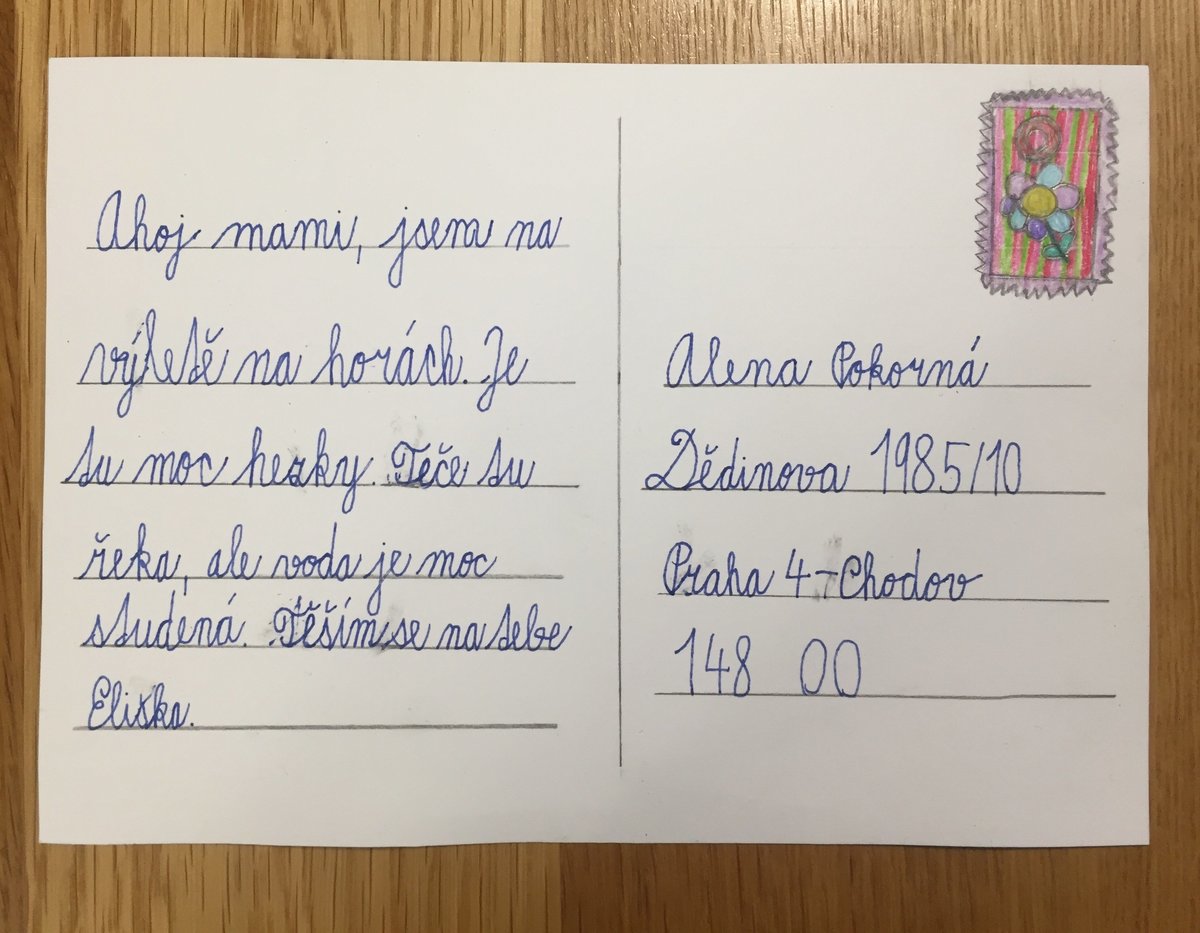 Ahoj mami, jsem na
výletě na horách. Je
tu moc hezky. Teče tu
řeka, ale voda je moc
studená. Těším se na tebe
Eliška.
Alena Pokorná
Dědinova 1985/10
Praha 4-Chodov
148 00